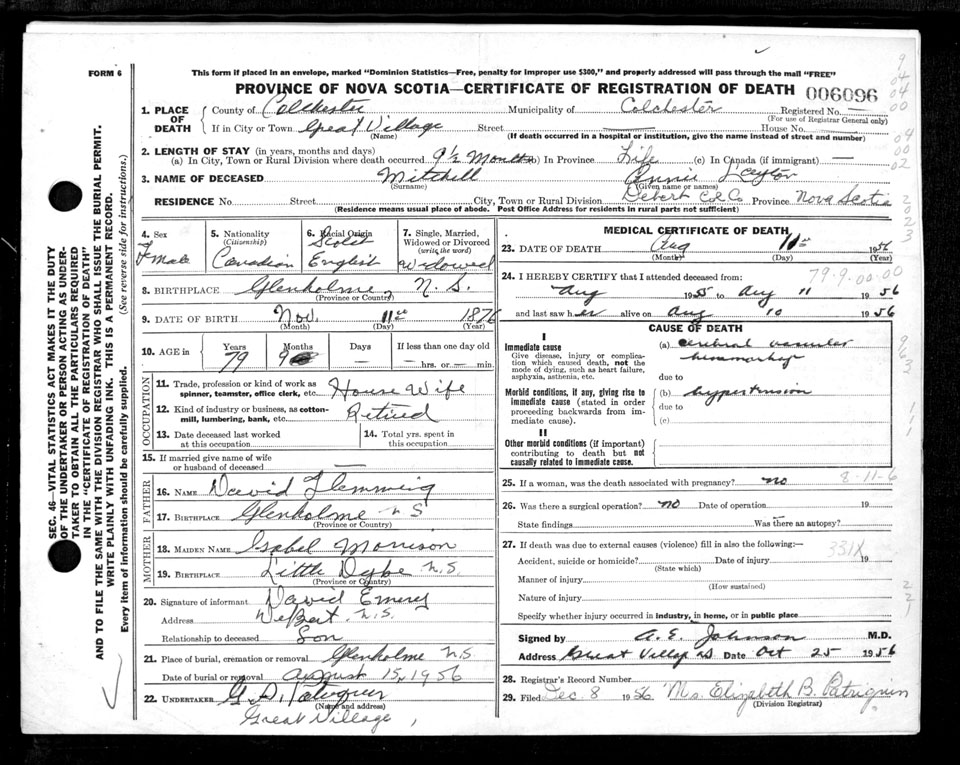 FORM 6
This form if placed in an envelope, marked "Dominion Statistics—Free, penalty for improper use $300," and properly addressed will pass through the mail "FREE"
PROVINCE OF NOVA SCOTIA—CERTIFICATE OF REGISTRATION OF DEATH 006096
1. PLACE OF DEATH County of Colchester Municipality of Colchester Registered No.
(For use of Registrar General only)
If in City or Town Great Village Street — House No. —
(Name) (If death occurred in a hospital or institution, give the name instead of street and number)
2. LENGTH OF STAY (in years, months and days)
(a) In City, Town or Rural Division where death occurred 9½ Months (b) In Province Life (c) In Canada (if immigrant) —
3. NAME OF DECEASED Mitchell Annie Layton
(Surname) (Given name or names)
RESIDENCE No. Street City, Town or Rural Division Debert Col. Co. Province Nova Scotia
(Residence means usual place of abode. Post Office Address for residents in rural parts not sufficient)
4. Sex Female
5. Nationality (Citizenship) Canadian
6. Racial Origin Scotch English
7. Single, Married, Widowed or Divorced (write the word) Widowed
8. BIRTHPLACE Glenholme, N. S.
(Province or Country)
9. DATE OF BIRTH Nov. 11 1876
(Month) (Day) (Year)
10. AGE in Years 79 Months 9 Days — If less than one day old
— hrs. or — min.
OCCUPATION
11. Trade, profession or kind of work as spinner, teamster, office clerk, etc. House Wife
12. Kind of industry or business, as cotton-mill, lumbering, bank, etc. Retired
13. Date deceased last worked at this occupation
14. Total yrs. spent in this occupation
15. If married give name of wife or husband of deceased —
FATHER
16. NAME David Flemming
17. BIRTHPLACE Glenholme N S
(Province or Country)
MOTHER
18. MAIDEN NAME Isabel Morrison
19. BIRTHPLACE Little Dyke N.S.
(Province or Country)
20. Signature of informant David Emery
Address Debert. N.S.
Relationship to deceased Son
21. Place of burial, cremation or removal Glenholme N S
Date of burial or removal August 15, 1956
22. UNDERTAKER G. D.
(Name and address)
Great Village,
MEDICAL CERTIFICATE OF DEATH
23. DATE OF DEATH Aug 11 1956
(Month) (Day) (Year)
24. I HEREBY CERTIFY that I attended deceased from: 79-9-00-00
Aug 1955 to Aug 11 1956
and last saw her alive on Aug 10 1956
CAUSE OF DEATH
I
Immediate cause
Give disease, injury or complication which caused death, not the mode of dying, such as heart failure, asphyxia, asthenia, etc.
(a) cerebral vascular
hemorrhage
due to
Morbid conditions, if any, giving rise to immediate cause (stated in order proceeding backwards from immediate cause).
(b) hypertension
due to
(c)
II
Other morbid conditions (if important) contributing to death but not causally related to immediate cause.
25. If a woman, was the death associated with pregnancy? no 8-11-6
26. Was there a surgical operation? no Date of operation 19
State findings Was there an autopsy?
27. If death was due to external causes (violence) fill in also the following:—
331X
Accident, suicide or homicide? Date of injury 19
(State which)
Manner of injury
(How sustained)
Nature of injury
Specify whether injury occurred in industry, in home, or in public place
Signed by A. E. Johnson M.D.
Address Great Village NS Date Oct 25 1956
28. Registrar's Record No.
29. Filed Dec 8 1956 Mrs. Elizabeth B. Patriquin
(Division Registrar)
SEC. 46—VITAL STATISTICS ACT MAKES IT THE DUTY
OF THE UNDERTAKER OR PERSON ACTING AS UNDER-
TAKER TO OBTAIN ALL THE PARTICULARS REQUIRED
IN THE "CERTIFICATE OF REGISTRATION OF DEATH"
AND TO FILE THE SAME WITH THE DIVISION REGISTRAR WHO SHALL ISSUE THE BURIAL PERMIT.
WRITE PLAINLY WITH UNFADING INK. THIS IS A PERMANENT RECORD.
Every item of information should be carefully supplied. (See reverse side for instructions.)